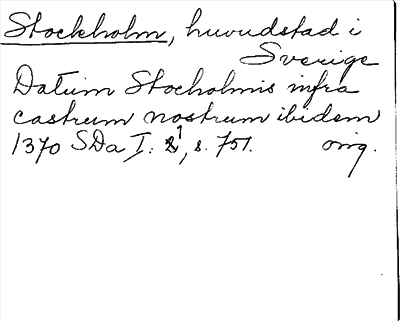 Stockholm, huvudstad i
Sverige
Datum Stocholmis infra
castrum nostrum ibidem
1370 SDa I: 1, s. 751. orig.